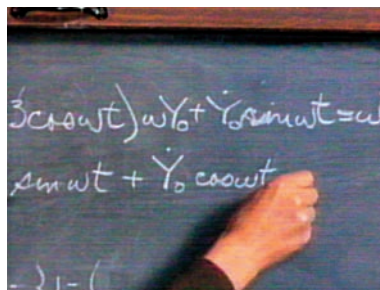 3cosωt)ωY₀+Ẏ₀sinωt=ω
sinωt + Ẏ₀ cosωt